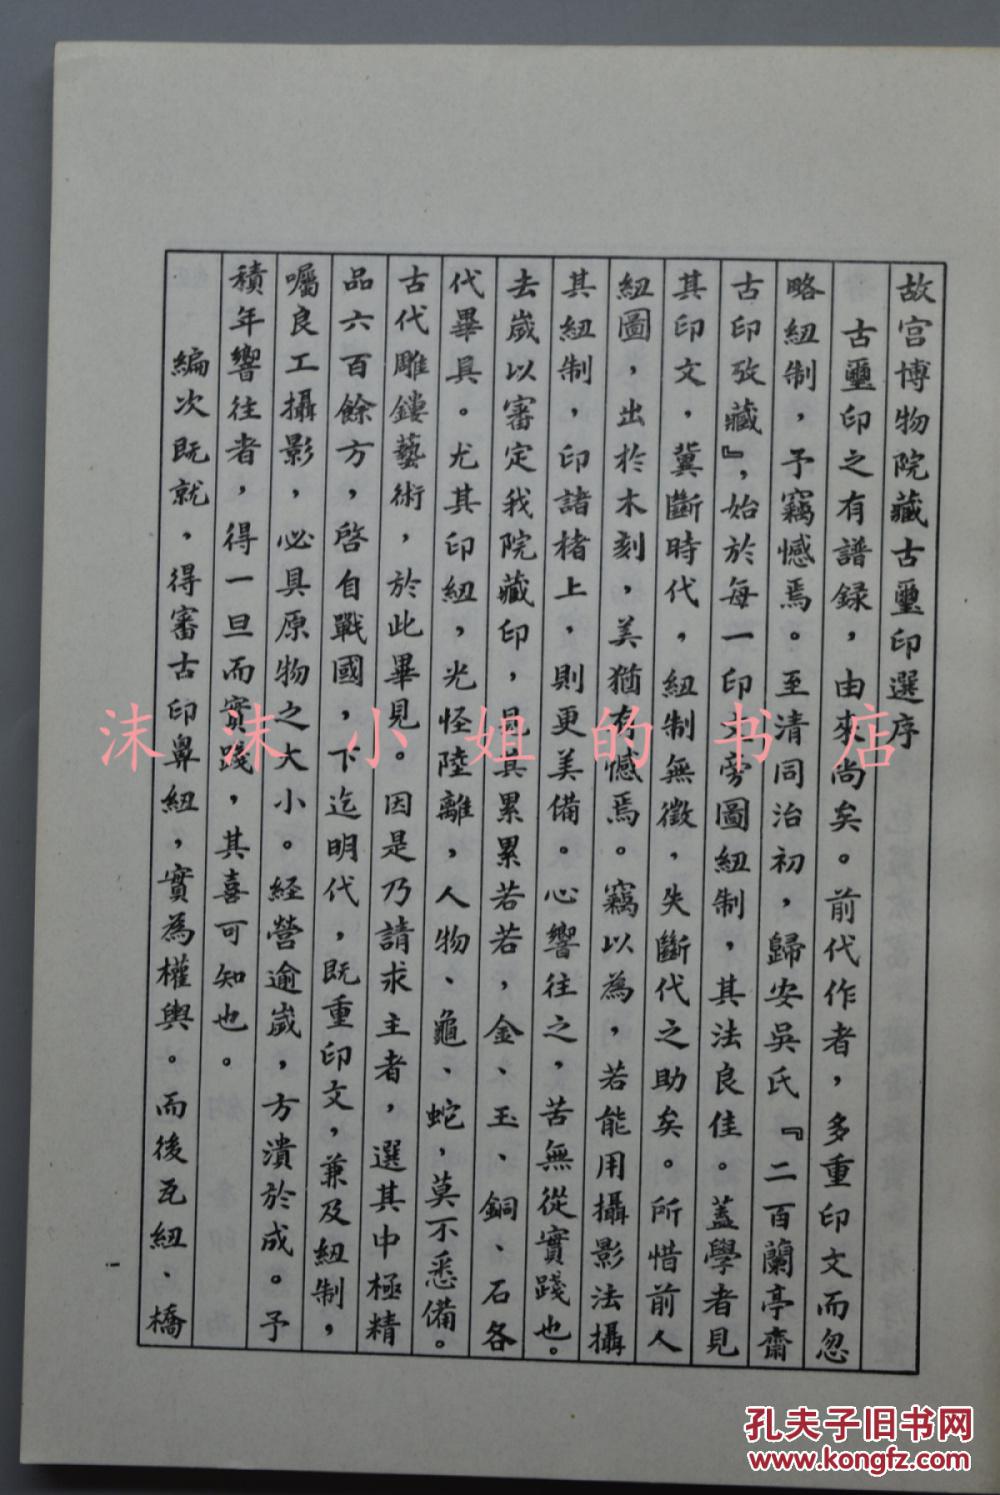 故宮博物院藏古璽印選序
古璽印之有譜録，由來尚矣。前代作者，多重印文而忽
略紐制，予竊憾焉。至清同治初，歸安吳氏『二百蘭亭齋
古印攷藏』，始於每一印之旁圖紐制，其法良佳。蓋學者見
其印文，冀斷時代，紐制無徵，失斷代之助矣。所惜前人
紐圖，出於木刻，美猶有憾焉。竊以為，若能用攝影法攝
其紐制，印諸楮上，則更美備。心響往之，苦無從實踐也。
去歲以審定我院藏印，見其累累若若，金、玉、銅、石各
代畢具。尤其印紐，光怪陸離，人物、龜、蛇，莫不悉備。
古代雕鏤藝術，於此畢見。因是乃請求主者，選其中極精
品六百餘方，啓自戰國，下迄明代，既重印文，兼及紐制，
囑良工攝影，必具原物之大小。経營逾嵗，方潰於成。予
積年響往者，得一旦而實踐，其喜可知也。
編次既就，得審古印鼻紐，實為權輿。而後瓦紐、橋
沫沫小姐的书店
孔夫子旧书网
www.kongfz.com